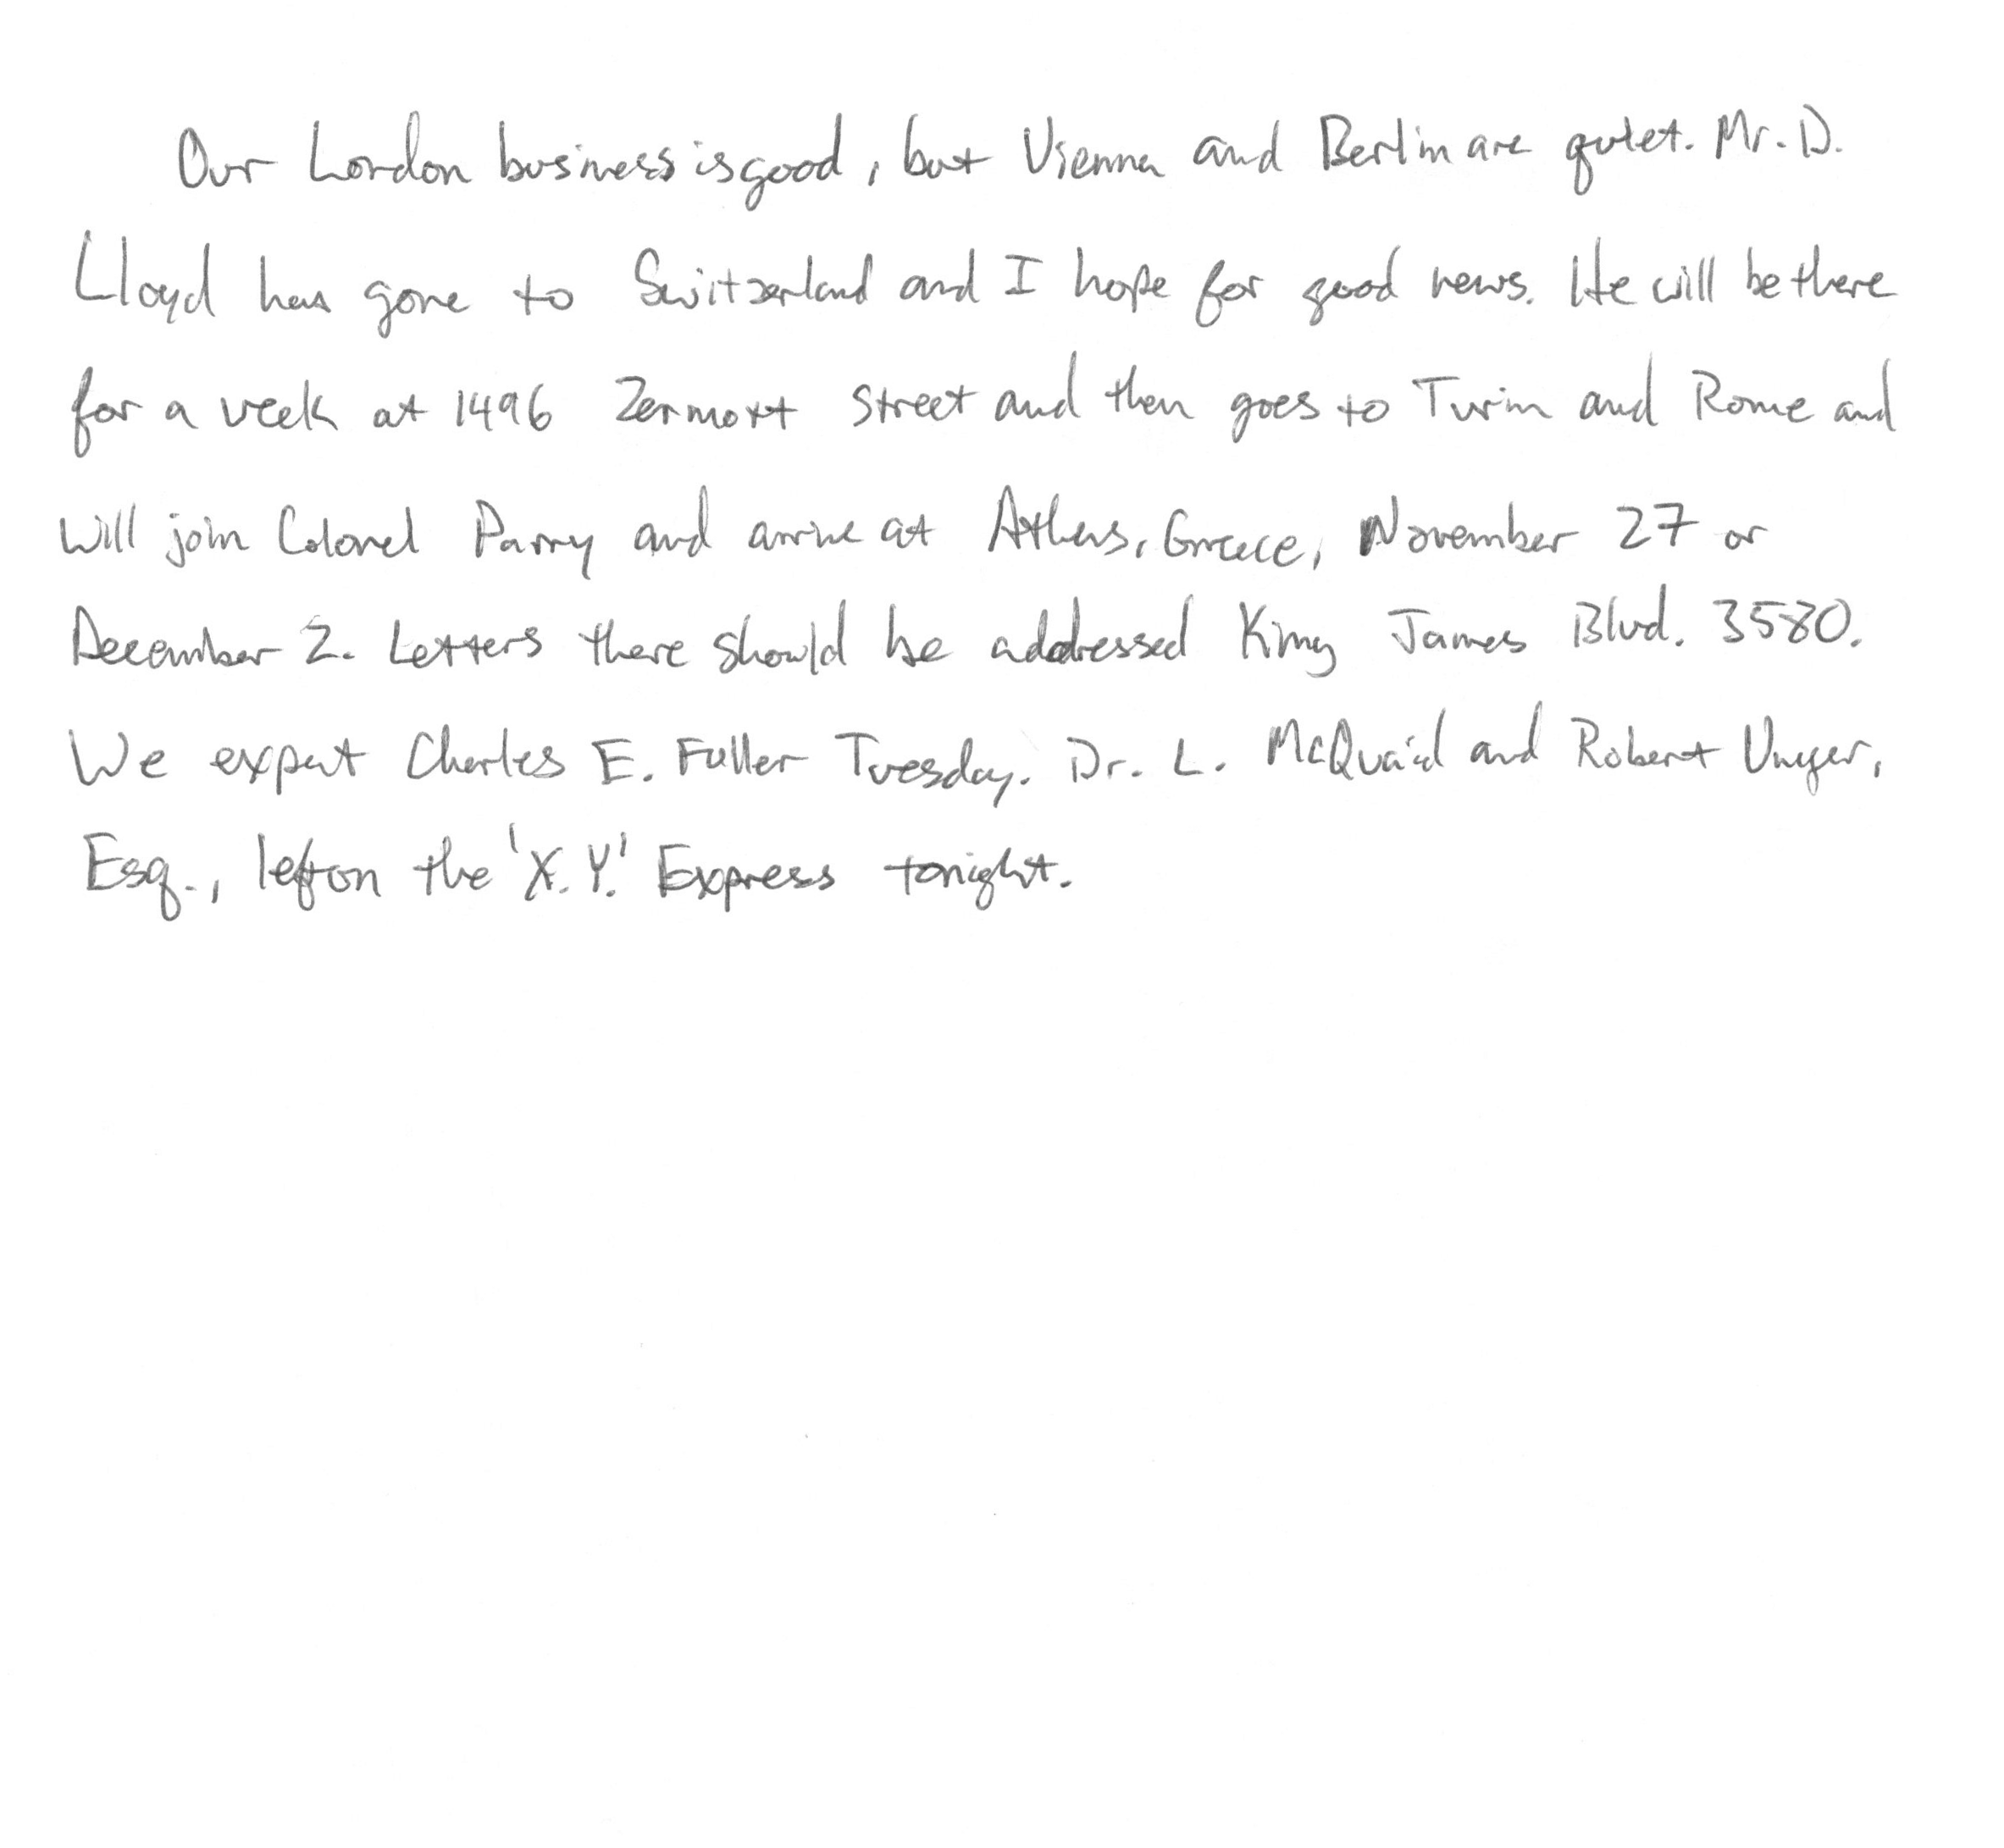 Our London business is good, but Vienna and Berlin are quiet. Mr. D.
Lloyd has gone to Switzerland and I hope for good news. He will be there
for a week at 1496 Zermott Street and then goes to Turin and Rome and
will join Colonel Parry and arrive at Athens, Greece, November 27 or
December 2. Letters there should be addressed King James Blvd. 3580.
We expect Charles E. Fuller Tuesday. Dr. L. McQuaid and Robert Unger,
Esq., left on the 'X.Y.' Express tonight.